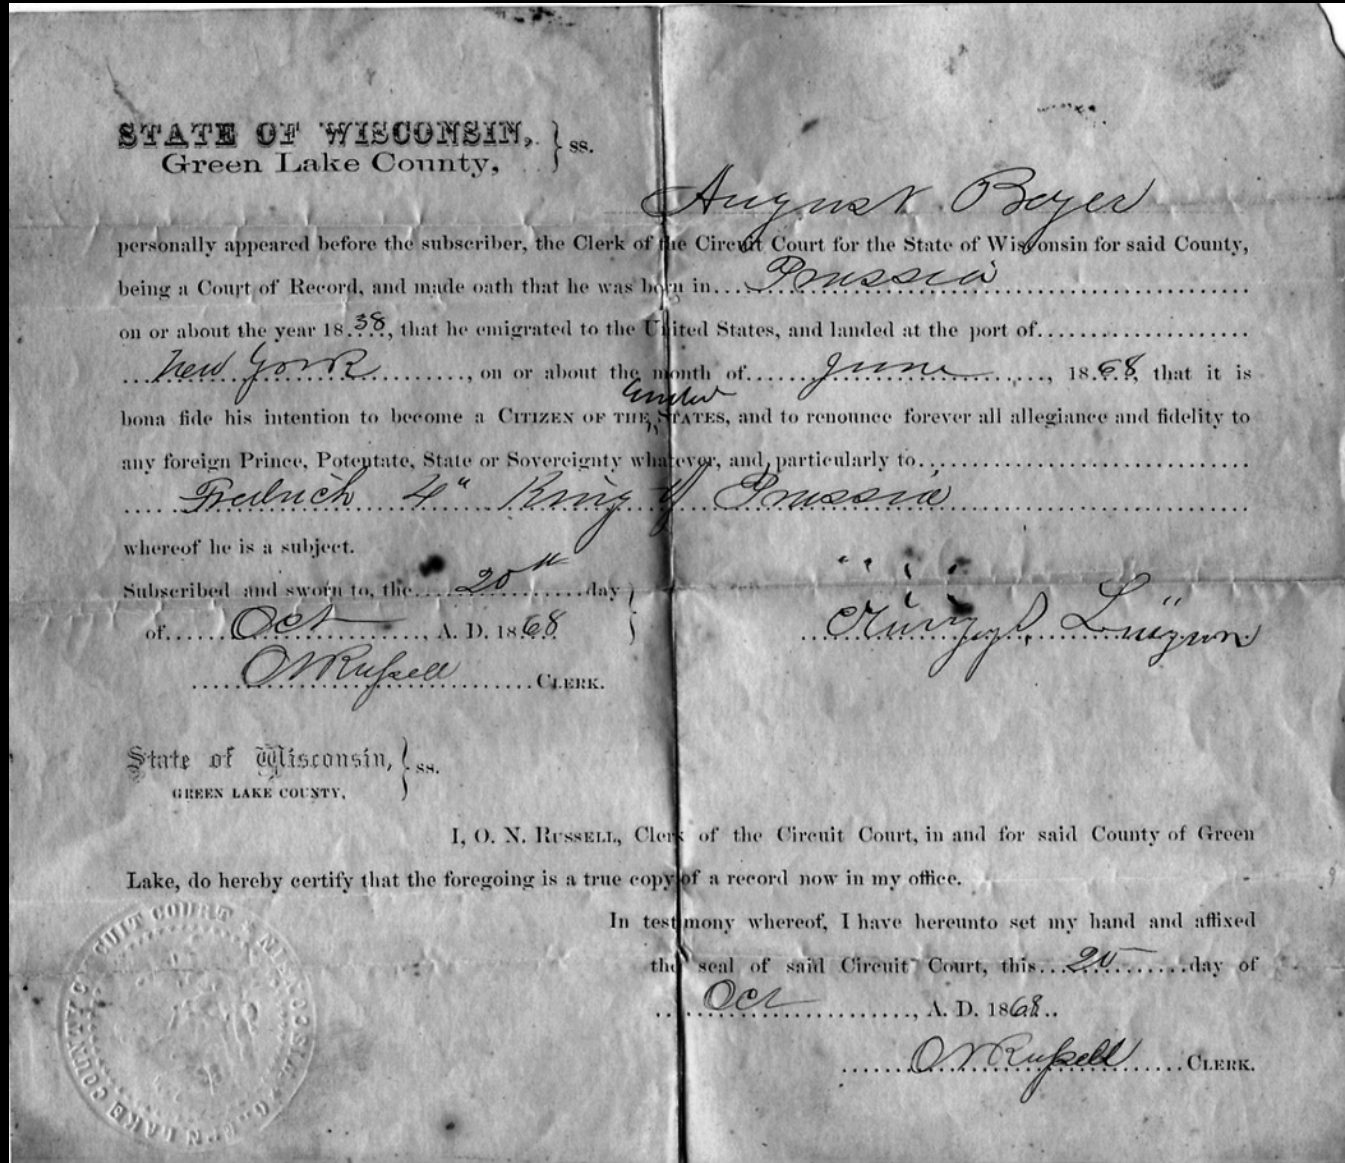 STATE OF WISCONSIN, } ss.
Green Lake County,
August Beyer
personally appeared before the subscriber, the Clerk of the Circuit Court for the State of Wisconsin for said County,
being a Court of Record, and made oath that he was born in....Prussia
on or about the year 18.38., that he emigrated to the United States, and landed at the port of
New York, on or about the month of June, 18.68, that it is
United
bona fide his intention to become a CITIZEN OF THE STATES, and to renounce forever all allegiance and fidelity to
any foreign Prince, Potentate, State or Sovereignty whatever, and particularly to
Fredrich 4" King of Prussia
whereof he is a subject.
Subscribed and sworn to, the 20th day
of Oct, A. D. 1868
O N Russell CLERK.
State of Wisconsin, } ss.
GREEN LAKE COUNTY,
I, O. N. RUSSELL, Clerk of the Circuit Court, in and for said County of Green
Lake, do hereby certify that the foregoing is a true copy of a record now in my office.
In testimony whereof, I have hereunto set my hand and affixed
the seal of said Circuit Court, this 20 day of
Oct, A. D. 1868..
O N Russell CLERK.
CIRCUIT COURT WISCONSIN
LAKE COUNTY